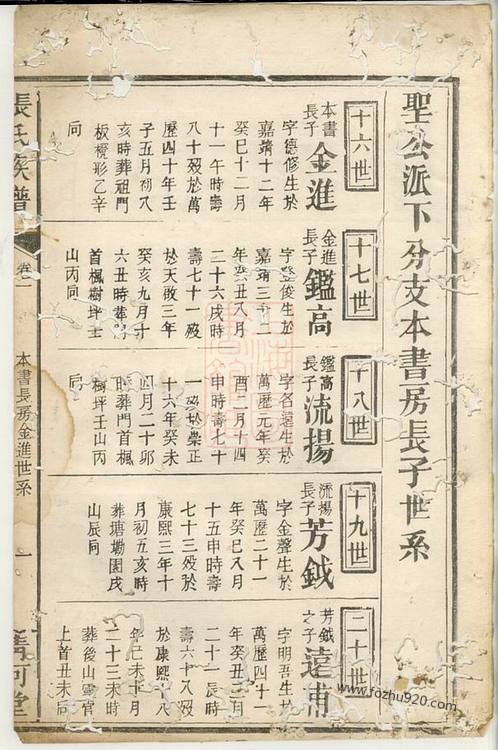 聖公派下分支本書房長子世系
十六世
本書長子
金進
字德修生於
嘉靖十二年
癸巳十一月
十一午時壽
八十歿於萬
歷四十年壬
子五月初八
亥時葬祖門
板櫈形乙辛
向
十七世
金進長子
鑑高
字登俊生於
嘉靖三十二
年癸丑八月
二十六戌時
壽七十一歿
於天啟三年
癸亥九月十
六丑時葬門
首楓樹坪壬
山丙向
十八世
鑑高長子
流揚
字名遠生於
萬歷元年癸
酉二月十四
申時壽七十
一歿於崇正
十六年癸未
四月二十卯
時葬門首楓
樹坪壬山丙
向
十九世
流揚長子
芳鉞
字金聲生於
萬歷二十一
年癸巳八月
十五申時壽
七十三歿於
康熙三年十
月初五亥時
葬塘塲園戌
山辰向
二十世
芳鉞之子
遠甫
字明吾生於
萬歷四十一
年癸丑三月
二十一長時
壽六十八歿
於康熙十八
年己未十月
二十三未時
葬後山靈官
上首丑未向
張氏族譜
卷一
本書長房金進世系
一
清河堂
www.fozhu920.com